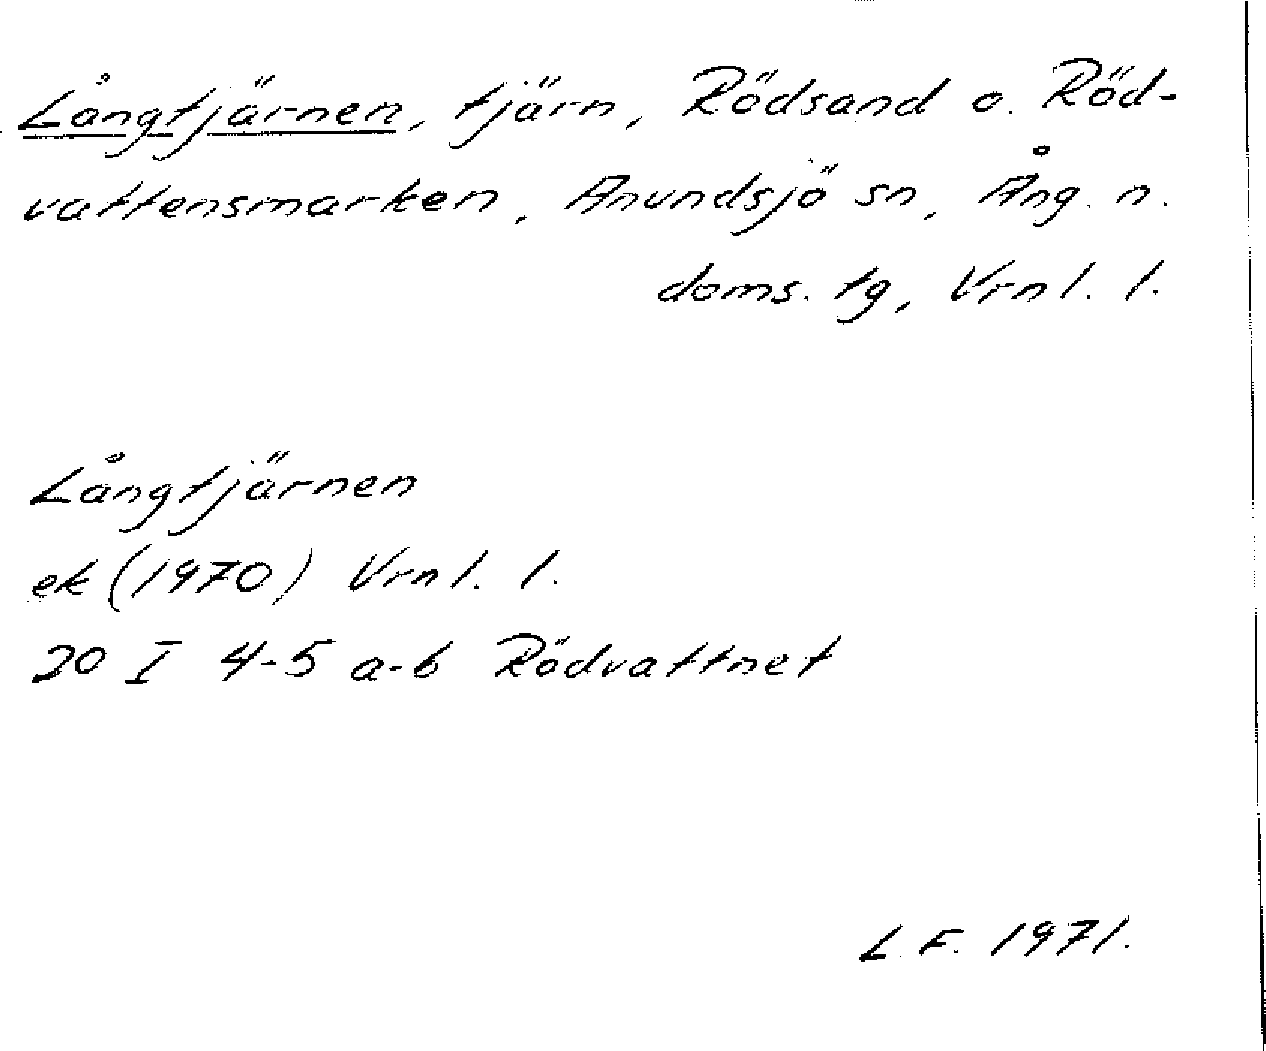 Långtjärnen, tjärn, Rödsand o. Röd-
vattensmarken, Anundsjö sn, Ång. n.
doms. tg, Vrnl. l.
Långtjärnen
ek (1970) Vrnl. l.
20 I 4-5 a-b Rödvattnet
L. F. 1971.